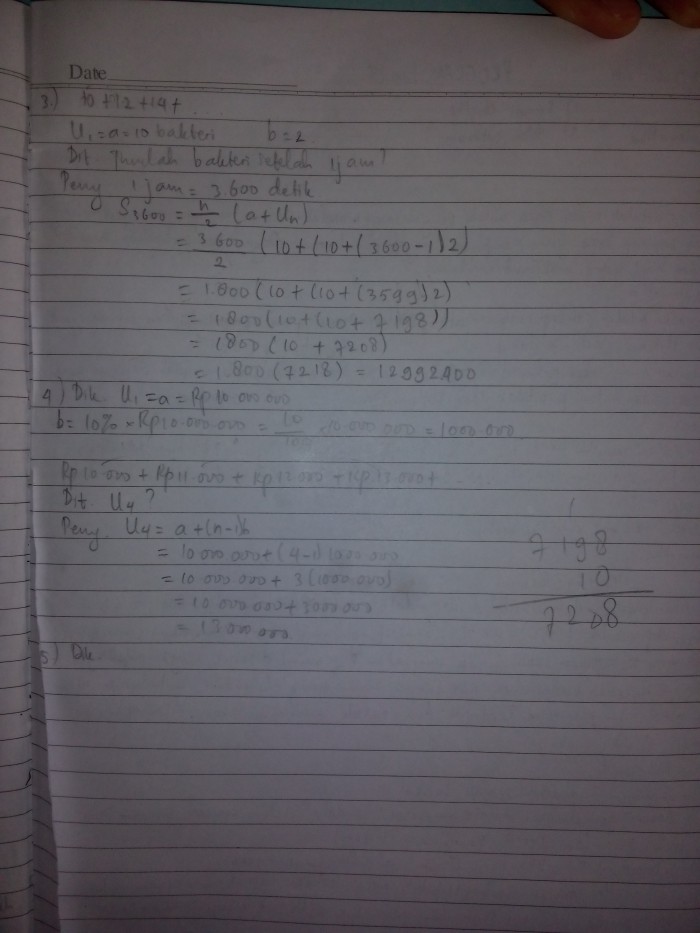 Date
3.) 10 + 12 + 14 +
U1 = a = 10 bakteri b = 2
Dit Jumlah bakteri setelah 1 jam?
Peny 1 jam = 3.600 detik
S3600 = n/2 (a + Un)
= 3 600/2 (10 + (10 + (3600 - 1) 2)
= 1.800 (10 + (10 + (3599) 2)
= 1800 (10 + (10 + 7198))
= 1800 (10 + 7208)
= 1.800 (7218) = 12992400
4) Dik. U1 = a = Rp 10 000 000
b = 10% × Rp 10.000.000 = 10/100 10 000 000 = 1000.000
Rp 10.000 + Rp 11.000 + Rp 12.000 + Rp 13.000 +
Dit. U4?
Peny. U4 = a + (n-1)b
= 10 000 000 + (4-1) 1000 000
= 10 000 000 + 3(1000.000)
= 10 000 000 + 3000 000
= 13 000 000
1
7198
10
7208
5) Dik.